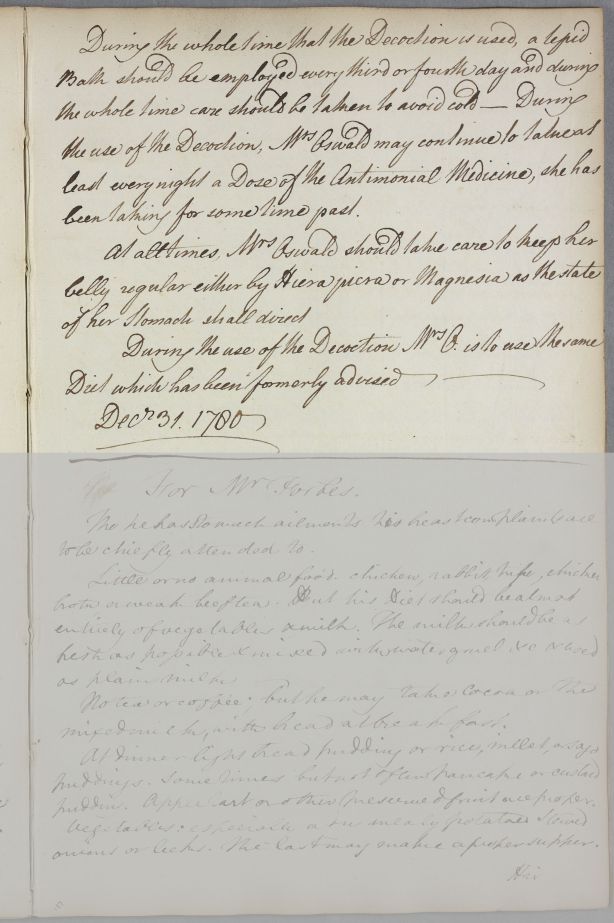 During the whole time that the Decoction is used, a tepid
Bath should be employed every third or fourth day and during
the whole time care should be taken to avoid cold — During
the use of the Decoction, Mrs Oswald may continue to take at
least every night a Dose of the Antimonial Medicine, she has
been taking for some time past.
At all times, Mrs Oswald should take care to keep her
belly regular either by Hiera picra or Magnesia as the state
of her Stomach shall direct
During the use of the Decoction Mrs O. is to use the same
Diet which has been formerly advised
Decr 31. 1780
For Mr Forbes.
Tho he has Stomach ailments his breast complaints are
to be chiefly attended to.
Little or no animal food. chicken, rabbit, tripe, chicken
broth or weak beef tea. But his Diet should be almost
entirely of vegetables & milk. The milk should be as
fresh as possible & mixed with water gruel &c & used
as plain milk
No tea or coffee; but he may take Cocoa or the
mixed milk, with bread at breakfast.
At dinner light bread pudding or rice, millet, or sago
puddings. Sometimes but not often pancake or custard
pudding. Apple tart or other preserved fruit are proper.
Vegetables: especially mealy potatoes Stewed
onions or leeks. The last may make a proper supper.
His